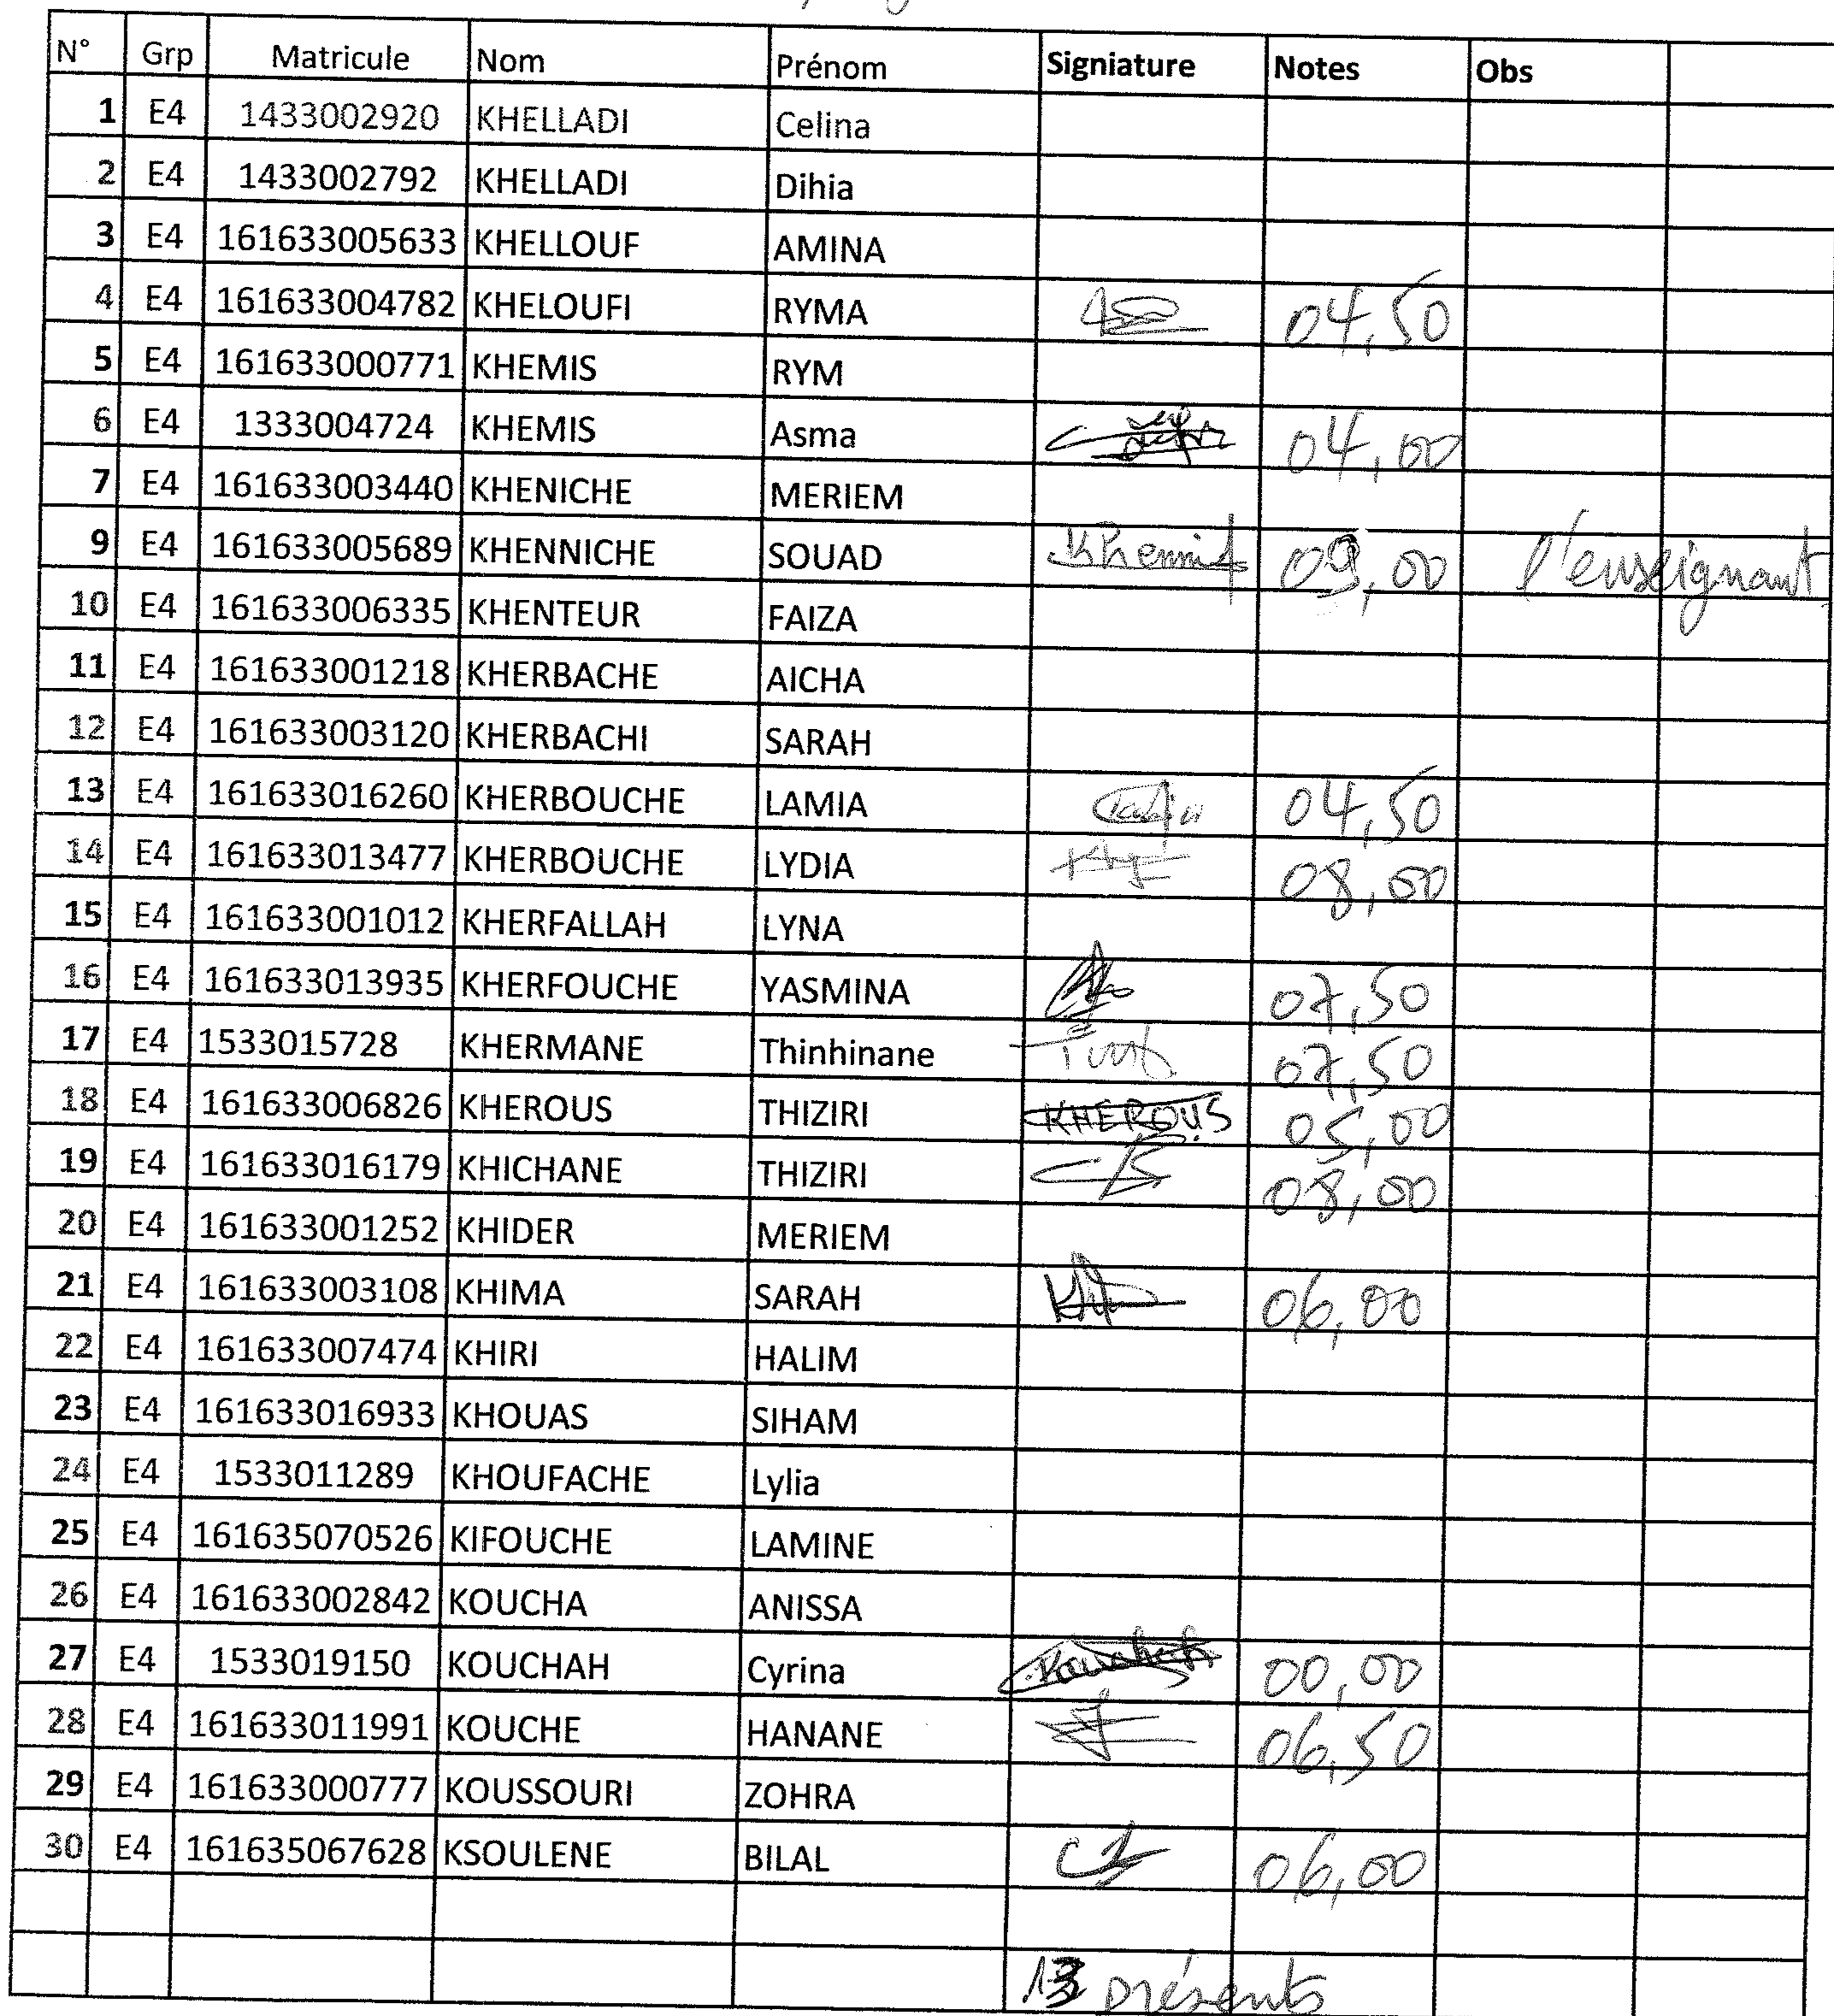 N° Grp Matricule Nom Prénom Signiature Notes Obs
1 E4 1433002920 KHELLADI Celina
2 E4 1433002792 KHELLADI Dihia
3 E4 161633005633 KHELLOUF AMINA
4 E4 161633004782 KHELOUFI RYMA 04,50
5 E4 161633000771 KHEMIS RYM
6 E4 1333004724 KHEMIS Asma 04,00
7 E4 161633003440 KHENICHE MERIEM
9 E4 161633005689 KHENNICHE SOUAD 09,00 l'enseignant
10 E4 161633006335 KHENTEUR FAIZA
11 E4 161633001218 KHERBACHE AICHA
12 E4 161633003120 KHERBACHI SARAH
13 E4 161633016260 KHERBOUCHE LAMIA 04,50
14 E4 161633013477 KHERBOUCHE LYDIA 08,00
15 E4 161633001012 KHERFALLAH LYNA
16 E4 161633013935 KHERFOUCHE YASMINA 07,50
17 E4 1533015728 KHERMANE Thinhinane 07,50
18 E4 161633006826 KHEROUS THIZIRI KHEROUS 05,00
19 E4 161633016179 KHICHANE THIZIRI 08,00
20 E4 161633001252 KHIDER MERIEM
21 E4 161633003108 KHIMA SARAH 06,00
22 E4 161633007474 KHIRI HALIM
23 E4 161633016933 KHOUAS SIHAM
24 E4 1533011289 KHOUFACHE Lylia
25 E4 161635070526 KIFOUCHE LAMINE
26 E4 161633002842 KOUCHA ANISSA
27 E4 1533019150 KOUCHAH Cyrina 00,00
28 E4 161633011991 KOUCHE HANANE 06,50
29 E4 161633000777 KOUSSOURI ZOHRA
30 E4 161635067628 KSOULENE BILAL 06,00
13 présents